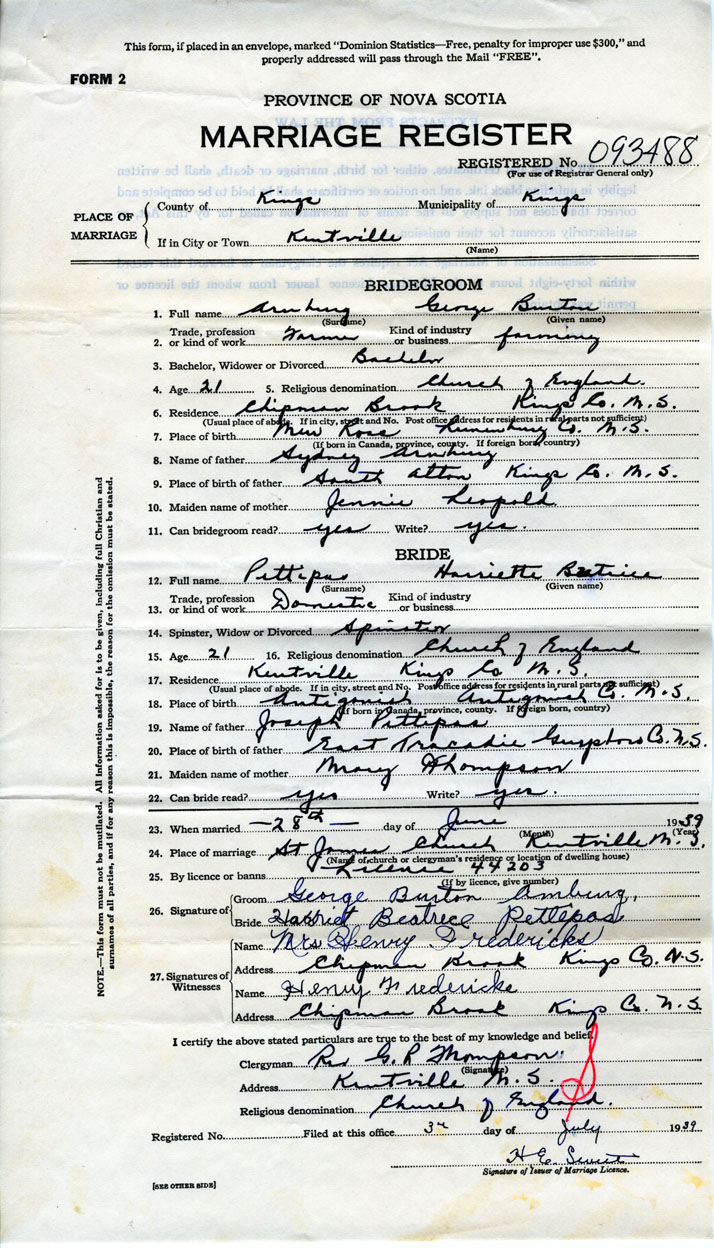 This form, if placed in an envelope, marked "Dominion Statistics—Free, penalty for improper use $300," and
properly addressed will pass through the Mail "FREE".
FORM 2
PROVINCE OF NOVA SCOTIA
MARRIAGE REGISTER
REGISTERED No. 093488
(For use of Registrar General only)
PLACE OF MARRIAGE
County of Kings Municipality of Kings
If in City or Town Kentville
(Name)
BRIDEGROOM
1. Full name Armburg George Burton
(Surname) (Given name)
2. Trade, profession or kind of work Farmer Kind of industry or business farming
3. Bachelor, Widower or Divorced Bachelor
4. Age 21 5. Religious denomination Church of England.
6. Residence Chipman Brook Kings Co. N.S.
(Usual place of abode. If in city, street and No. Post office address for residents in rural parts not sufficient)
7. Place of birth New Ross Lunenburg Co. N.S.
(If born in Canada, province, county. If foreign born, country)
8. Name of father Sydney Armburg
9. Place of birth of father South Alton Kings Co. N.S.
10. Maiden name of mother Jennie Leopold
11. Can bridegroom read? yes Write? yes.
BRIDE
12. Full name Pettepas Harriette Beatrice
(Surname) (Given name)
13. Trade, profession or kind of work Domestic Kind of industry or business
14. Spinster, Widow or Divorced Spinster
15. Age 21 16. Religious denomination Church of England
17. Residence Kentville Kings Co N.S.
(Usual place of abode. If in city, street and No. Post office address for residents in rural parts not sufficient)
18. Place of birth Antigonish Antigonish Co. N.S.
(If born in Canada, province, county. If foreign born, country)
19. Name of father Joseph Pettepas
20. Place of birth of father East Tracadie Guysboro Co. N.S.
21. Maiden name of mother Mary Thompson
22. Can bride read? yes Write? yes.
23. When married —28th— day of June 1939
(Month) (Year)
24. Place of marriage St James Church Kentville N.S.
(Name of church or clergyman's residence or location of dwelling house)
25. By licence or banns Licence 44203
(If by licence, give number)
26. Signature of
Groom George Burton Amburg.
Bride Harriet Beatrece Pettepas
27. Signatures of Witnesses
Name Mrs Henry Fredericks
Address Chipman Brook Kings Co. N.S.
Name Henry Fredericks
Address Chipman Brook Kings Co. N.S
I certify the above stated particulars are true to the best of my knowledge and belief.
Clergyman Rev G. R Thompson.
(Signature)
Address Kentville N.S.
Religious denomination Church of England.
Registered No. Filed at this office 3rd day of July 1939
H E
Signature of Issuer of Marriage Licence.
[SEE OTHER SIDE]
NOTE.—This form must not be mutilated. All Information asked for is to be given, including full Christian and
surnames of all parties, and if for any reason this is impossible, the reason for the omission must be stated.